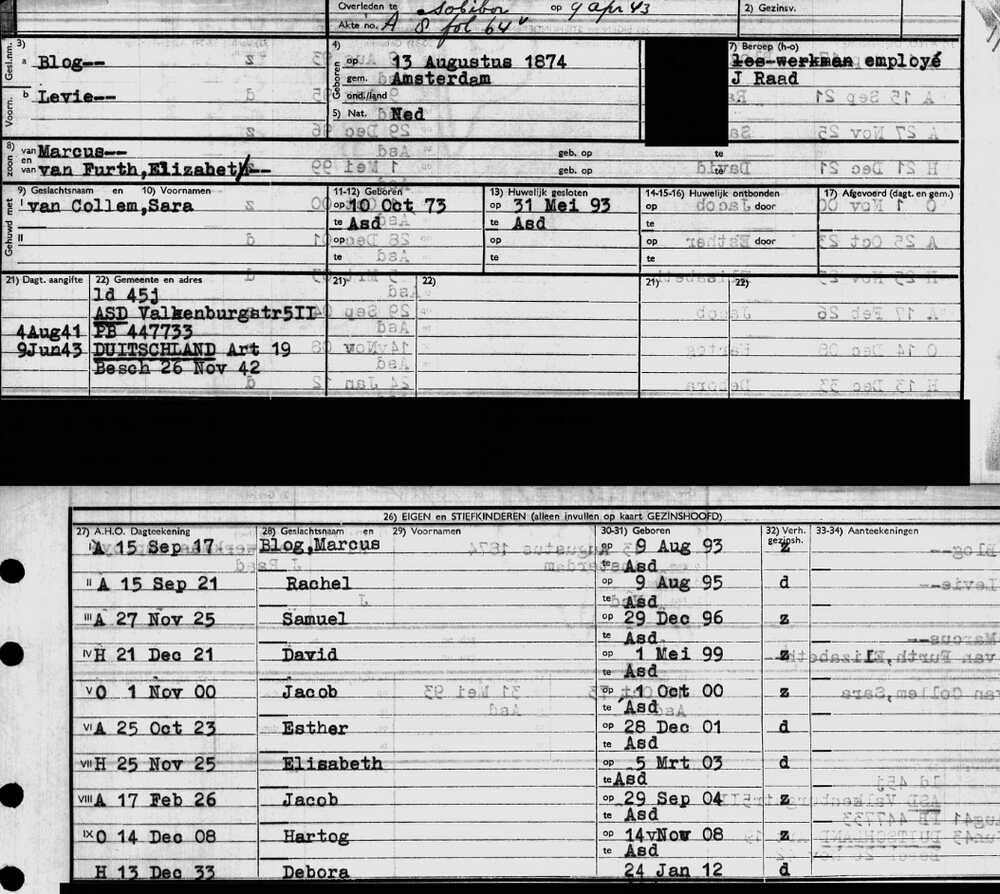 Overleden te Sobibor op 9 apr 43 2) Gezinsv.
Akte no. A 8 fol 64v
3) Gesl.nm. a Blog--
Voorn. b Levie--
4) Geboren op 13 Augustus 1874
gem. Amsterdam
ond./land
5) Nat. Ned
7) Beroep (h-o)
los-werkman employé
J Raad
8) zoon van Marcus-- geb. op te
en van van Furth,Elizabeth-- geb. op te
Gehuwd met 9) Geslachtsnaam en 10) Voornamen 11-12) Geboren 13) Huwelijk gesloten 14-15-16) Huwelijk ontbonden 17) Afgevoerd (dagt. en gem.)
I van Collem,Sara op 10 Oct 73 op 31 Mei 93 op door
te Asd te Asd te
II op op op door
te te te
21) Dagt. aangifte 22) Gemeente en adres 21) 22) 21) 22)
ld 45j
ASD Valkenburgstr5II
4Aug41 PB 447733
9Jun43 DUITSCHLAND Art 19
Besch 26 Nov 42
26) EIGEN en STIEFKINDEREN (alleen invullen op kaart GEZINSHOOFD)
27) A.H.O. Dagteekening 28) Geslachtsnaam en 29) Voornamen 30-31) Geboren 32) Verh. gezinsh. 33-34) Aanteekeningen
I A 15 Sep 17 Blog,Marcus op 9 Aug 93 z
te Asd
II A 15 Sep 21 Rachel op 9 Aug 95 d
te Asd
III A 27 Nov 25 Samuel op 29 Dec 96 z
te Asd
IV H 21 Dec 21 David op 1 Mei 99 z
te Asd
V O 1 Nov 00 Jacob op 1 Oct 00 z
te Asd
VI A 25 Oct 23 Esther op 28 Dec 01 d
te Asd
VII H 25 Nov 25 Elisabeth op 5 Mrt 03 d
te Asd
VIII A 17 Feb 26 Jacob op 29 Sep 04 z
te Asd
IX O 14 Dec 08 Hartog op 14vNov 08 z
te Asd
H 13 Dec 33 Debora 24 Jan 12 d